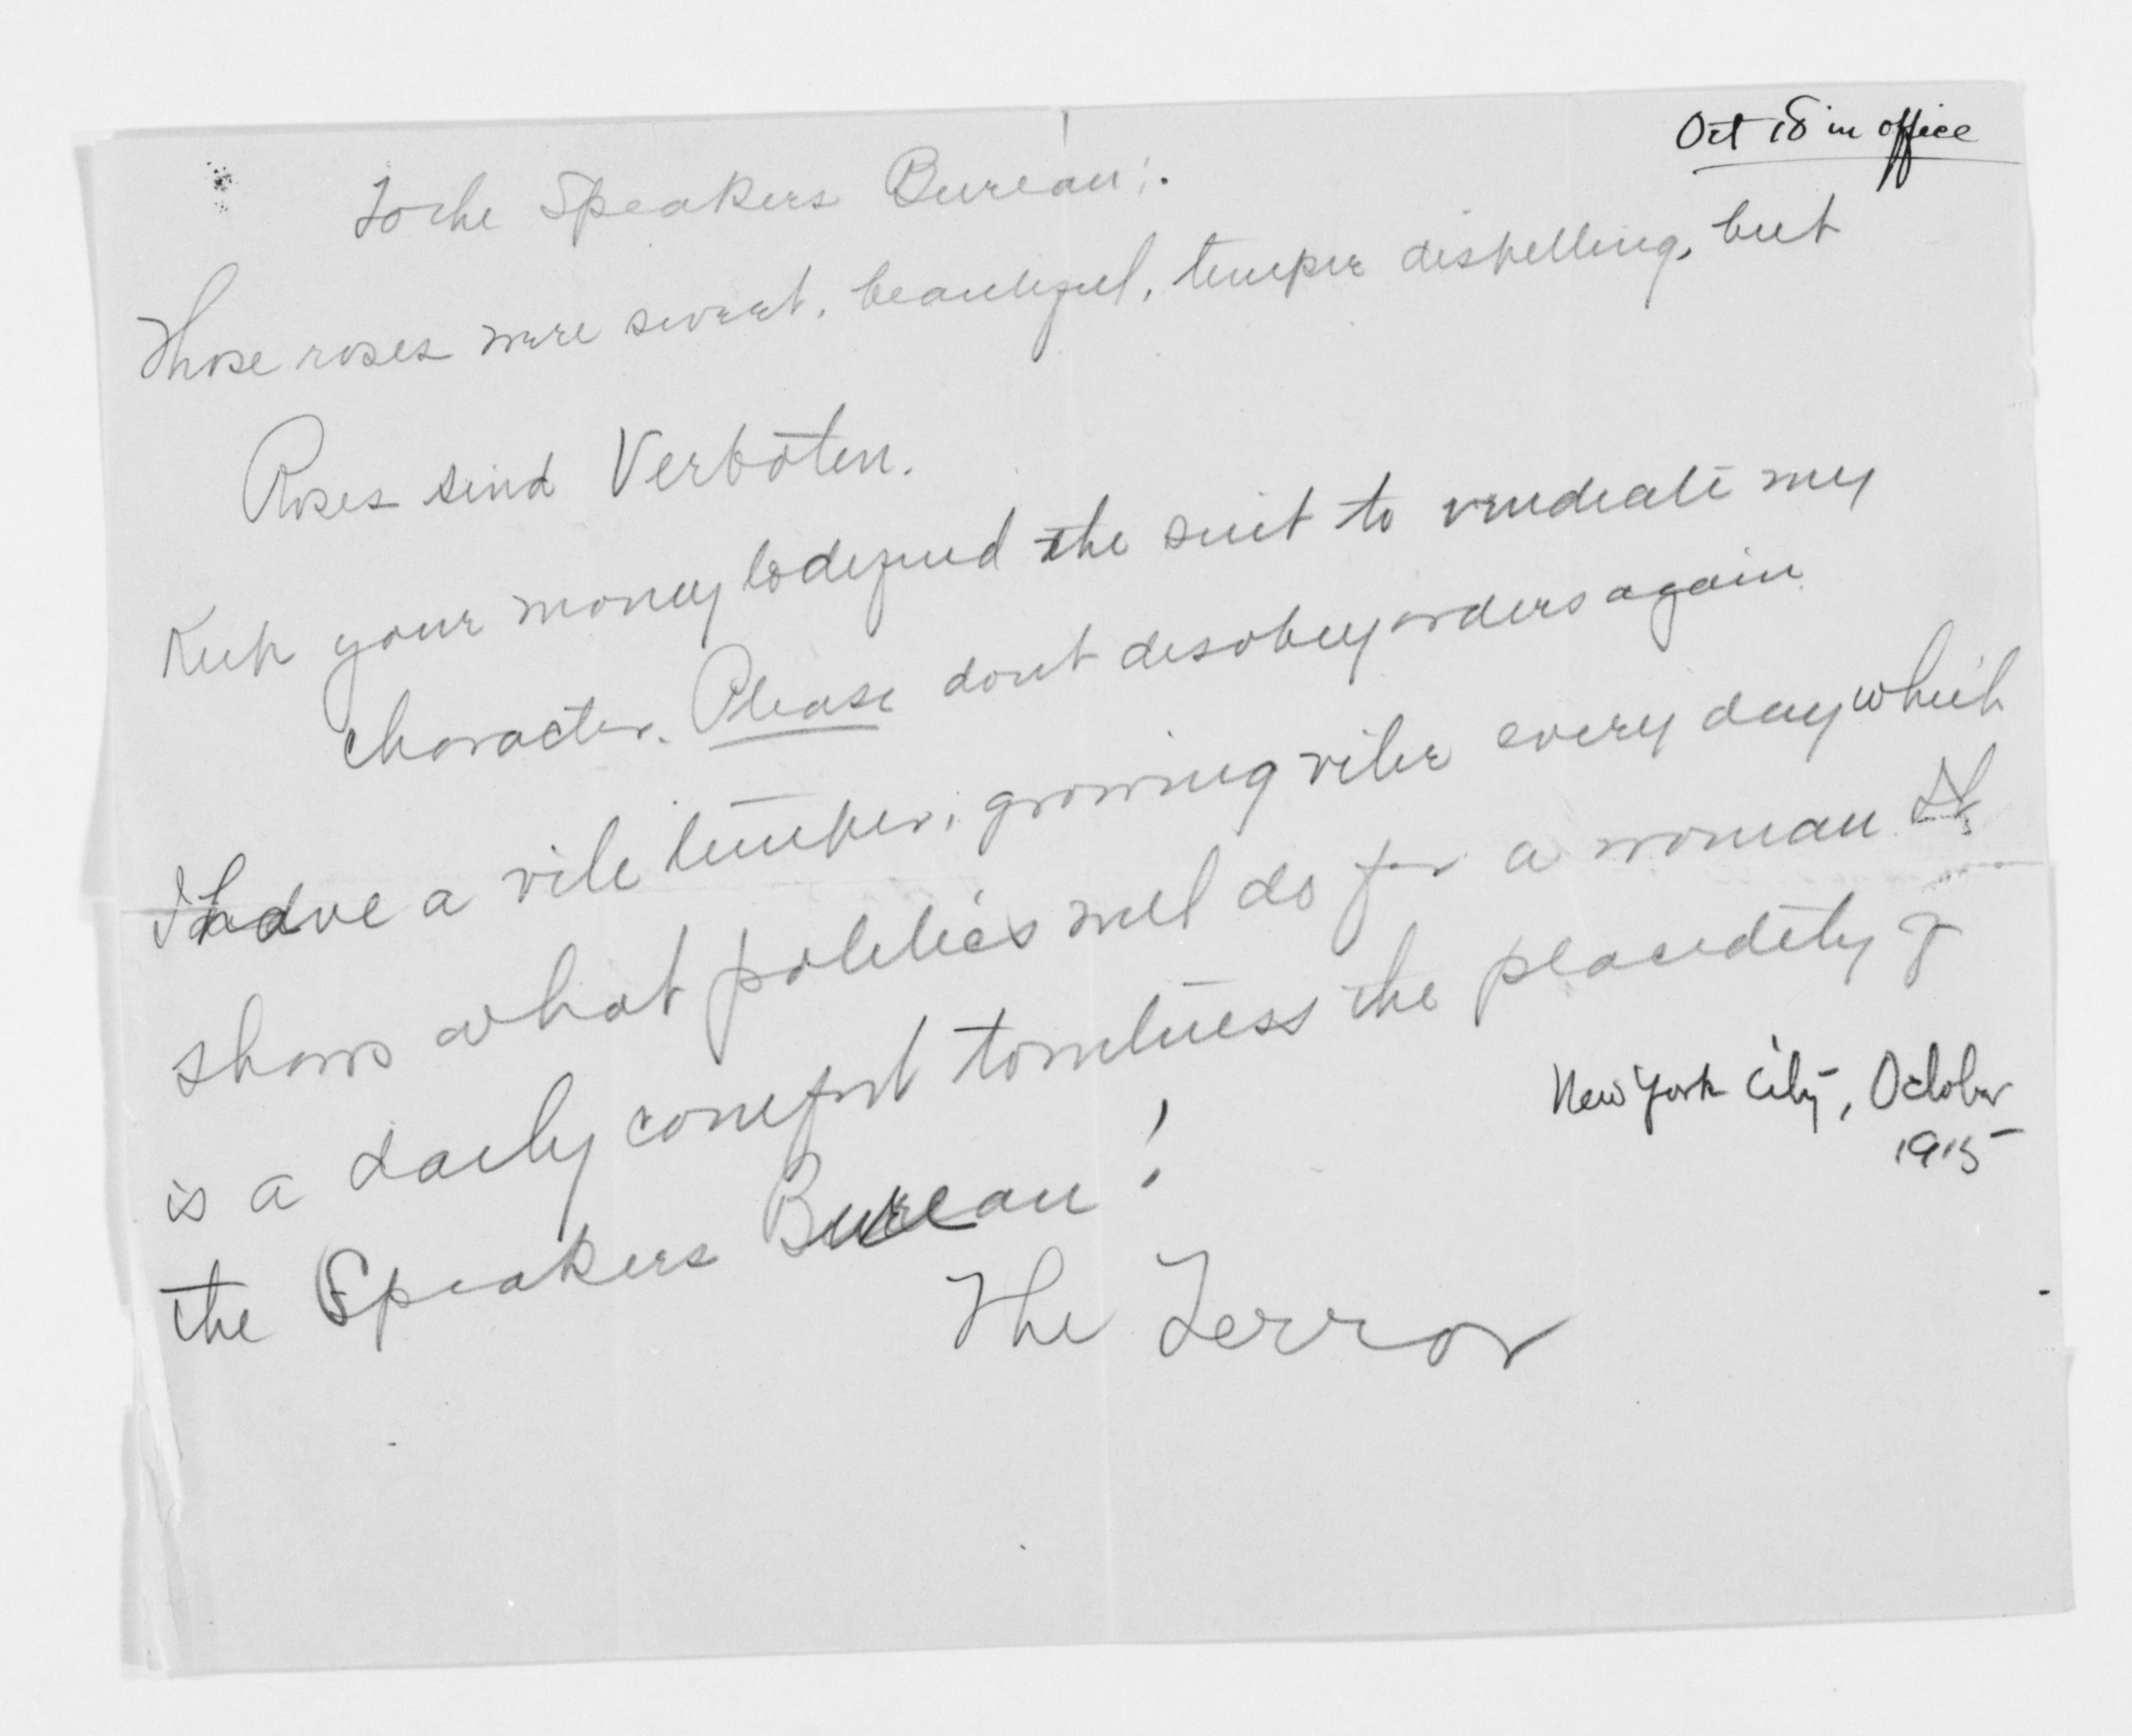 Oct 18 in office
To the Speakers Bureau:.
Those roses were sweet, beautiful, temper dispelling, but
Roses sind Verboten.
Keep your money to defend the suit to vindicate my
character. Please dont disobey orders again
I have a vile temper, growing viler every day which
shows what politics will do for a woman. It
is a daily comfort to witness the placidity of
the Speakers Bureau!
The Terror
New York City, October
1915